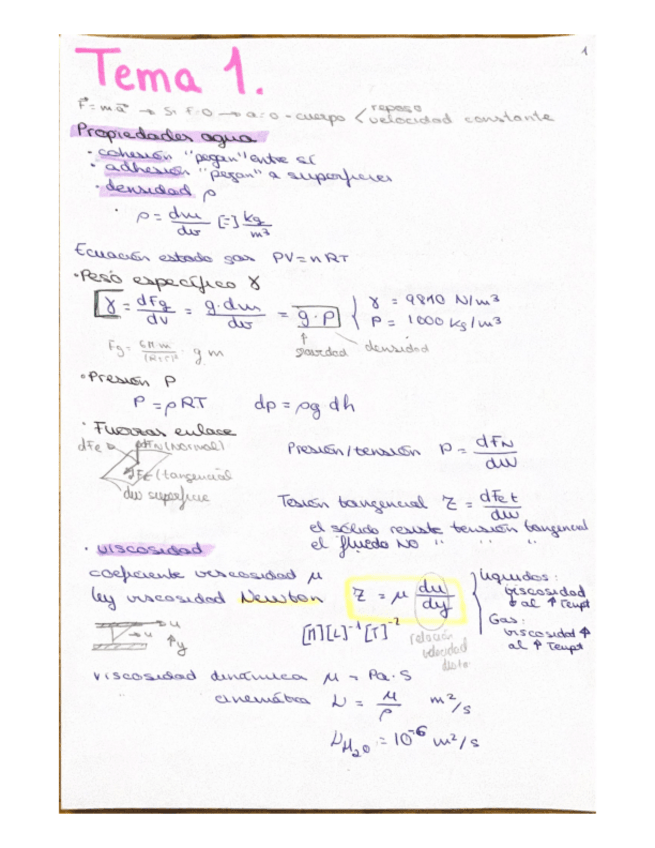 1
Tema 1.
F⃗=ma⃗ → Si F=0 → a=0 - cuerpo < reposo
velocidad constante
Propiedades agua
· cohesión "pegan" entre sí
· adhesión "pegan" a superficies
· densidad ρ
· ρ = dm/dv [=] kg/m³
Ecuación estado gas PV=nRT
· Peso específico γ
γ = dFg/dv = g·dm/dv = g·ρ
γ = 9810 N/m³
ρ = 1000 kg/m³
gravedad densidad
· Presión P
P = ρRT dp = ρg dh
· Fuerzas enlace
dFe FN (Normal)
(tangencial
dw superficie
Presión/tensión P = dFN/dw
Tesión tangencial τ = dFet/dw
el sólido resiste tensión tangencial
el fluido NO " " "
· viscosidad
coeficiente viscosidad μ
ley viscosidad Newton τ = μ du/dy
Líquidos:
viscosidad
↓ al ↑ Tempt
Gas:
viscosidad ↑
al ↑ Tempt
u
u
↑y
[M][L]⁻¹[T]⁻²
relación
velocidad
viscosidad dinámica μ → Pa·S
cinemática ν = μ/ρ m²/s
ν H₂O = 10⁻⁶ m²/s